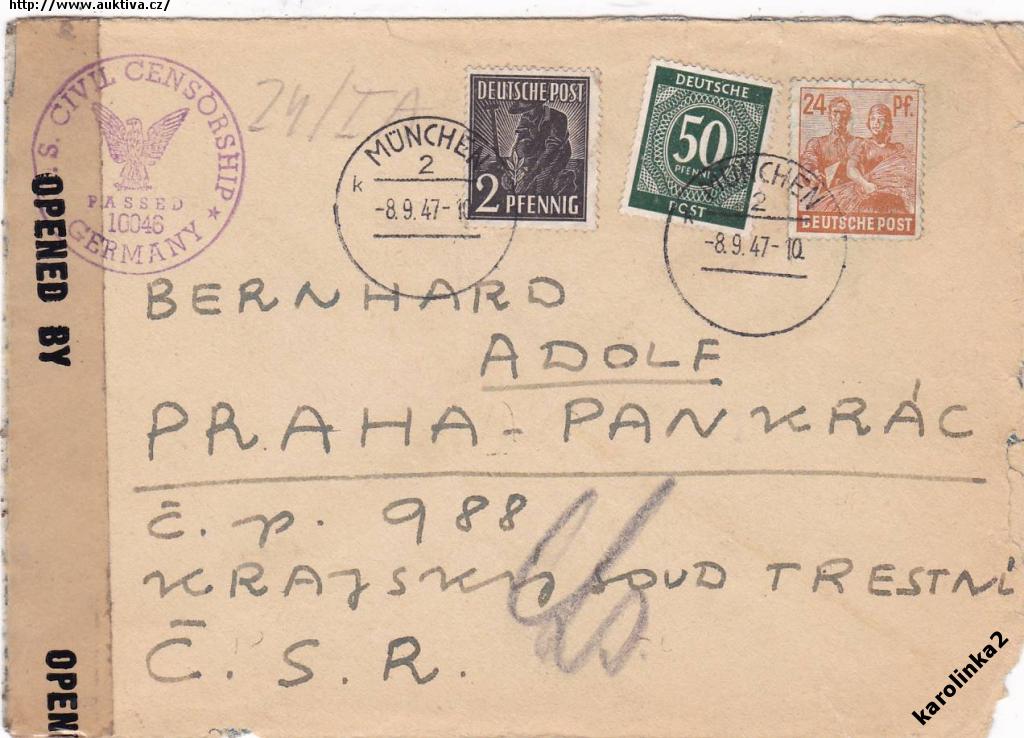 http://www.auktiva.cz/
S. CIVIL CENSORSHIP
PASSED
10046
GERMANY
24/IA
DEUTSCHE POST
2 PFENNIG
MÜNCHEN
2
k
-8.9.47-10
DEUTSCHE
50
PFENNIG
POST
24 Pf.
DEUTSCHE POST
MÜNCHEN
2
k
-8.9.47-10
OPENED BY
OPEN
BERNHARD
ADOLF
PRAHA - PANKRÁC
č. p. 988
KRAJSKÝ SOUD TRESTNÍ
Č. S. R.
karolinka2